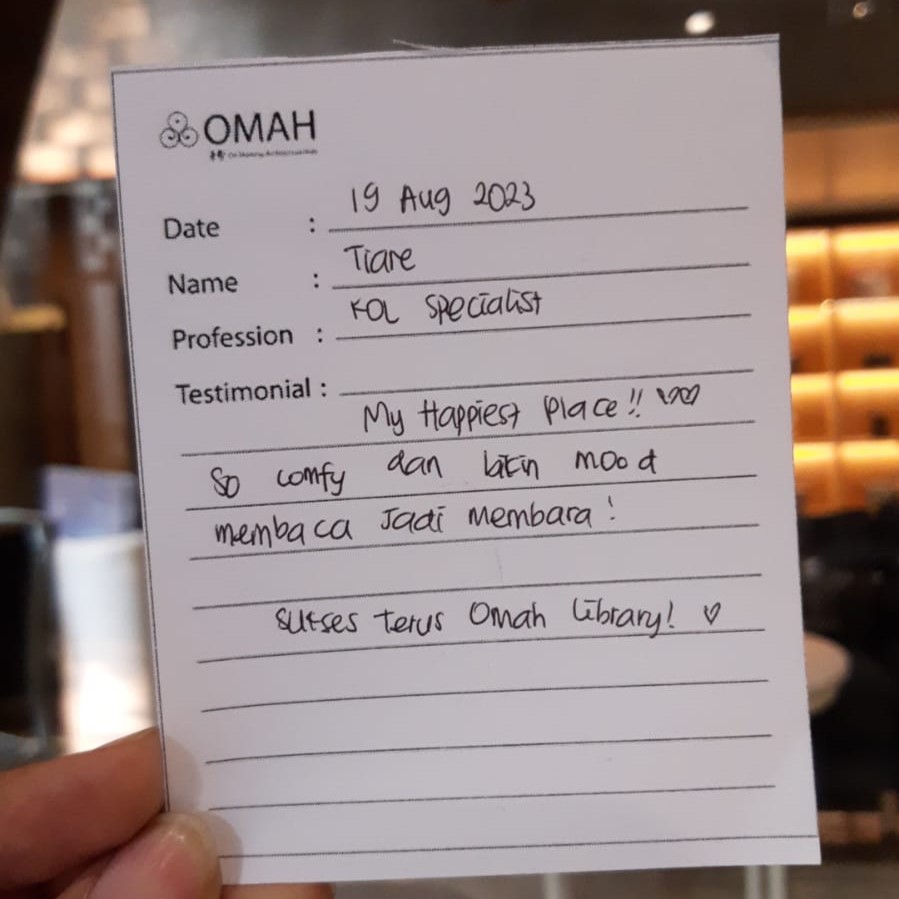 OMAH
Date : 19 Aug 2023
Name : Tiare
Profession : KOL specialist
Testimonial :
My Happiest Place!! ♡♡♡
So comfy dan bikin mood
membaca Jadi Membara!
sukses terus Omah Library! ♡